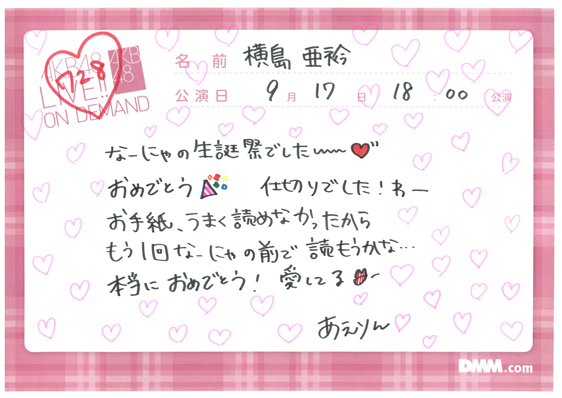 AKB48
LIVE!!
ON DEMAND
AKB
48
728
名 前 横島 亜衿
公演日 9月 17日 18:00 公演
なーにゃの生誕祭でした〜〜
おめでとう 仕切りでした!わー
お手紙、うまく読めなかったから
もう1回なーにゃの前で読もうかな…
本当におめでとう! 愛してる
あえりん
DMM.com